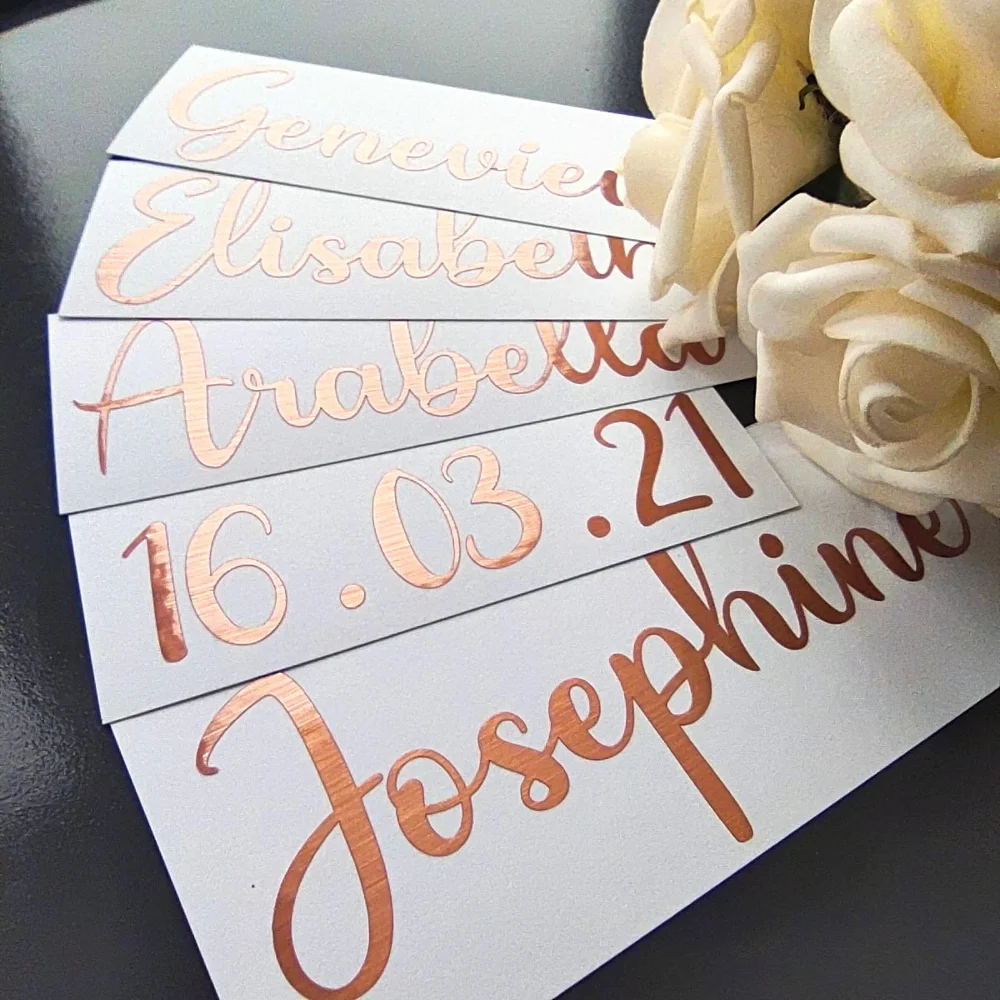 Genevie
Elisabeth
Arabella
16.03.21
Josephine